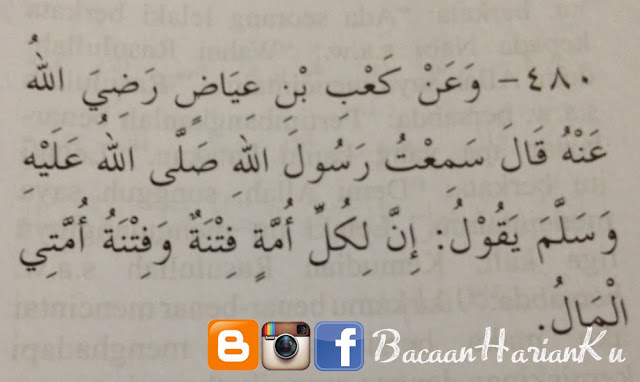 ٤٨٠- وَعَنْ كَعْبِ بْنِ عِيَاضٍ رَضِيَ اللهُ
عَنْهُ قَالَ سَمِعْتُ رَسُولَ اللهِ صَلَّى اللهُ عَلَيْهِ
وَسَلَّمَ يَقُوْلُ: إِنَّ لِكُلِّ أُمَّةٍ فِتْنَةٌ وَفِتْنَةُ أُمَّتِي
الْمَالُ.
BacaanHarianKu